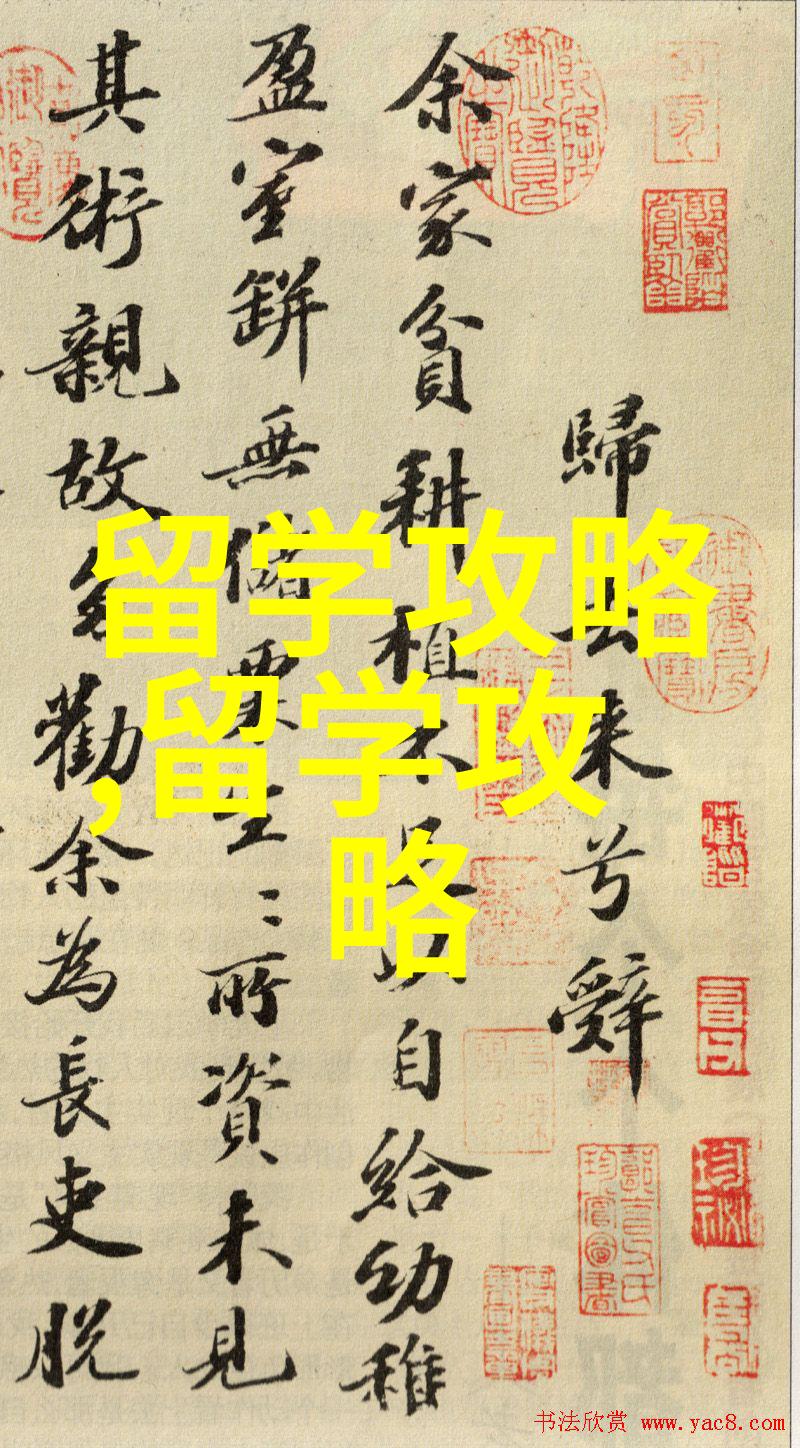 歸去来兮辞
余家貧耕植不足以自給幼稚
盈室缾無儲粟生〻所資未見
其術親故多勸余為長吏脱
留学攻略
,留学攻
略
书法欣赏 www.yac8.com